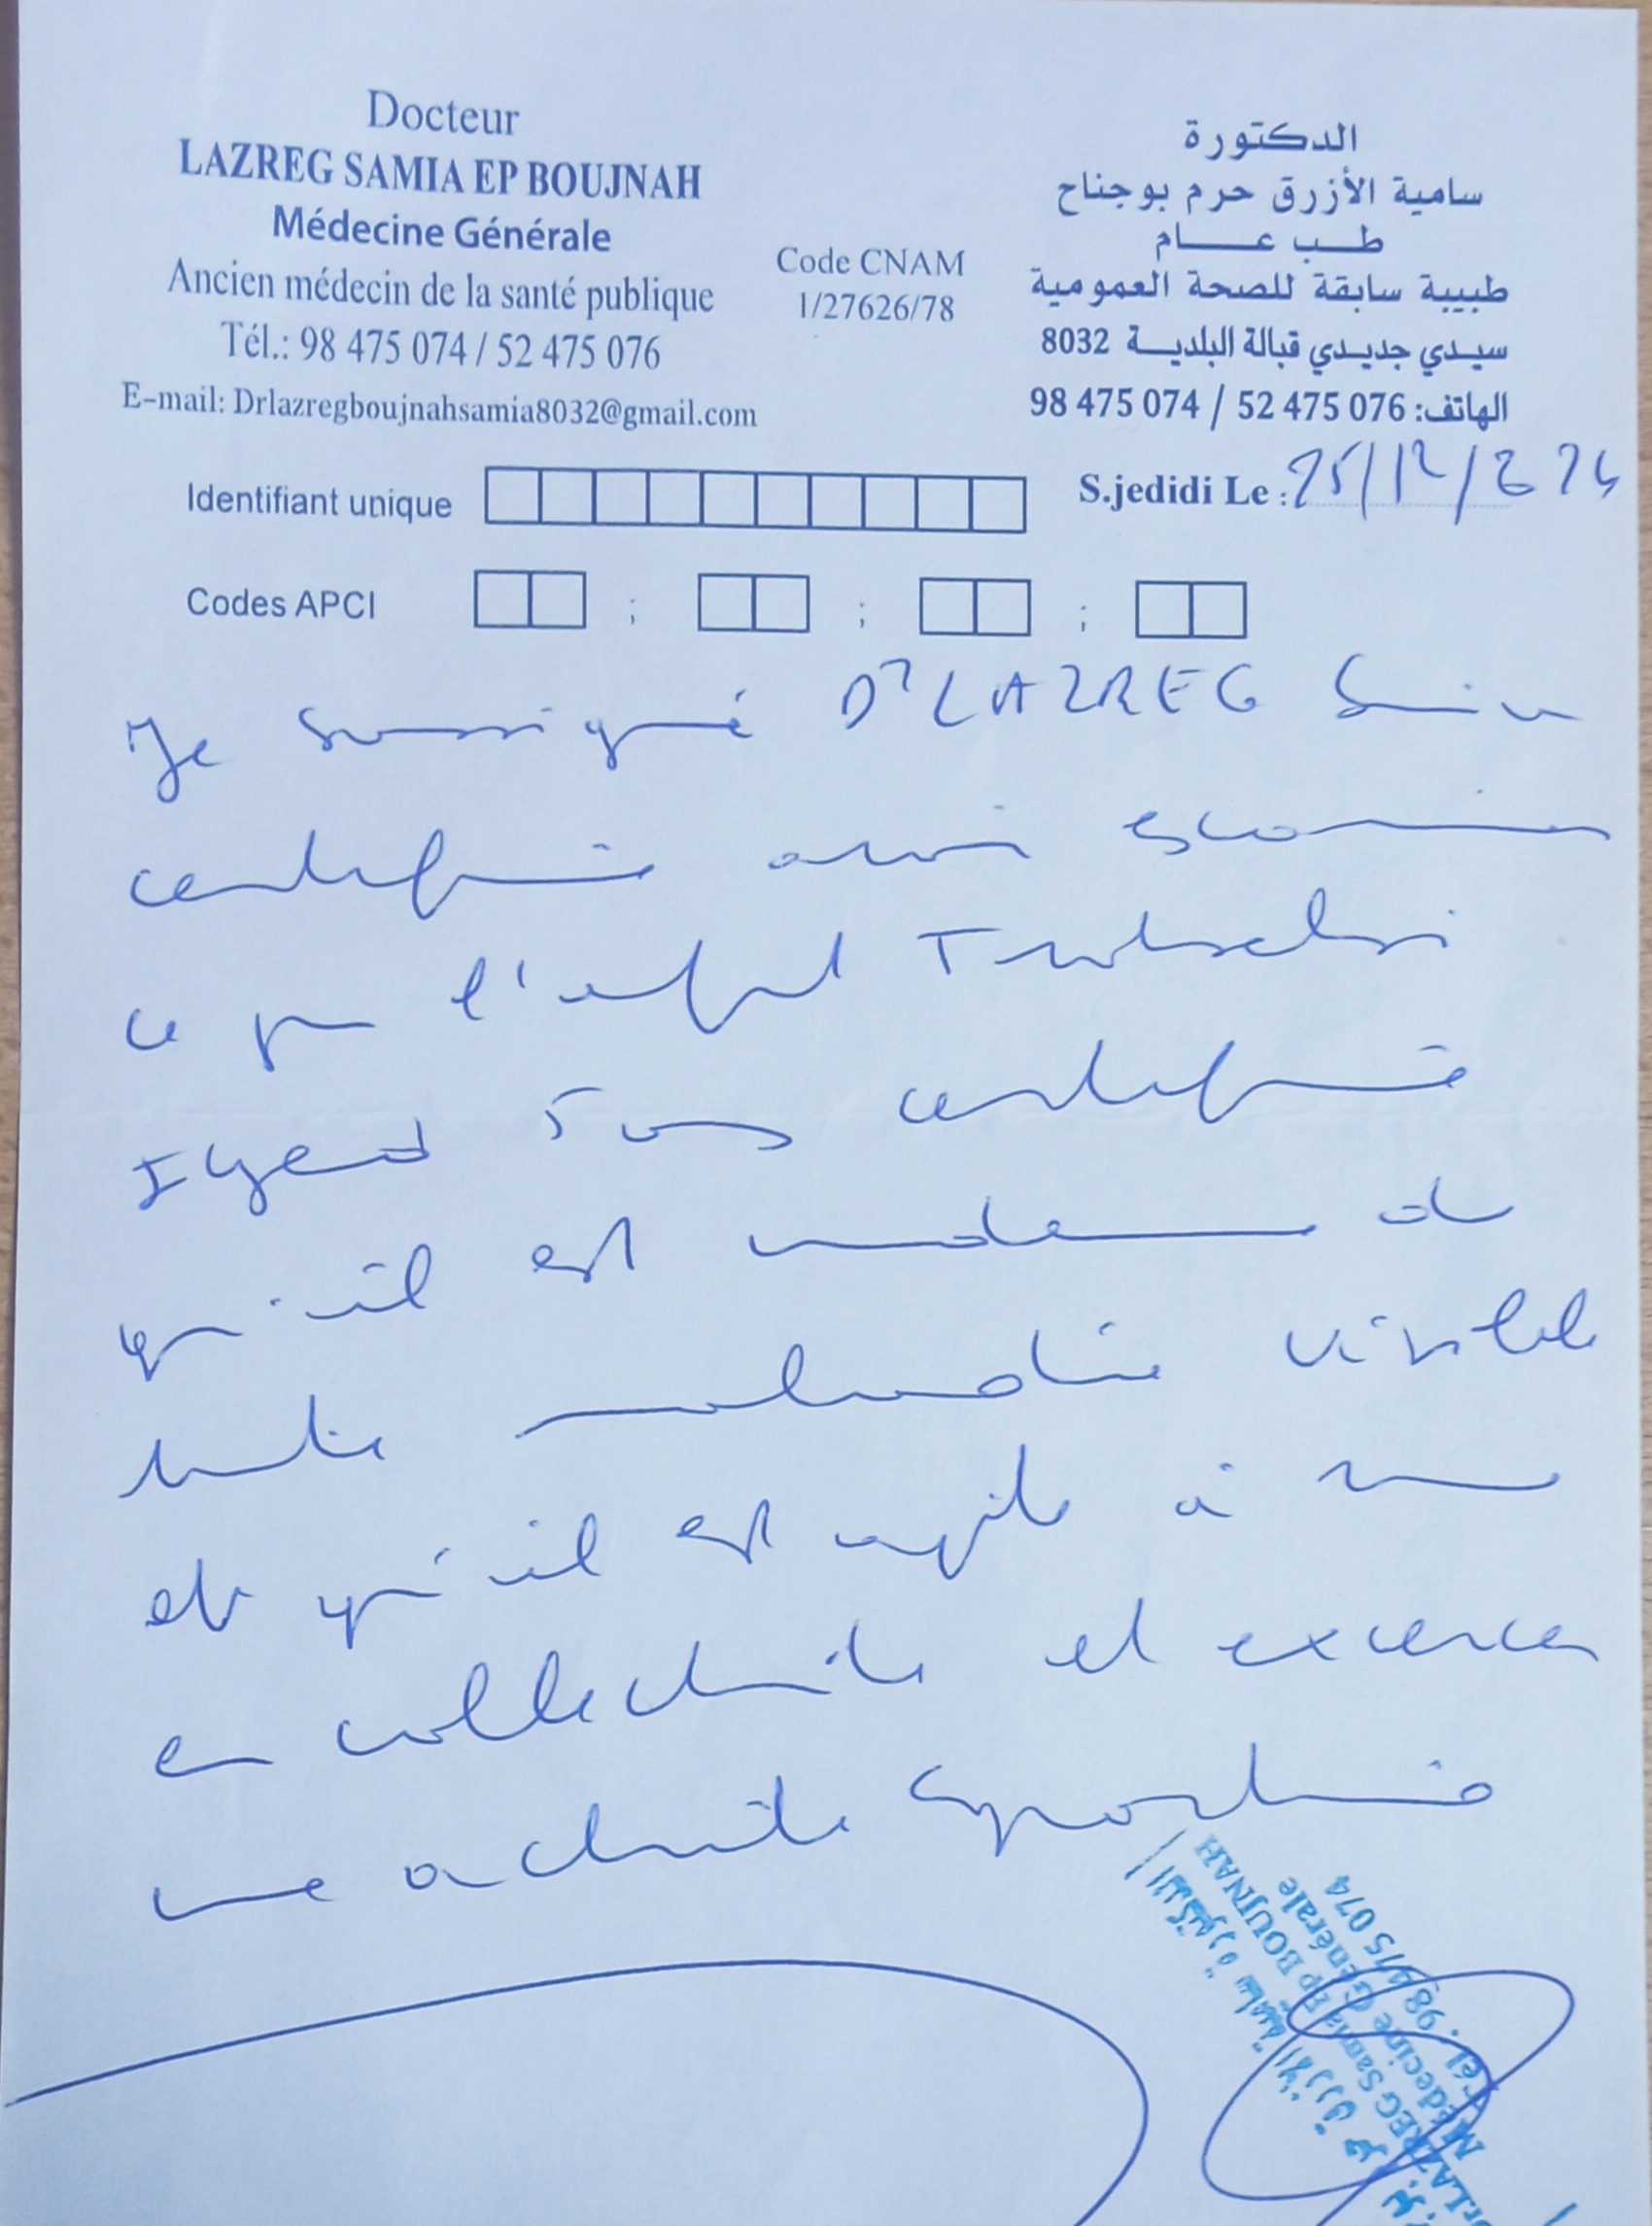 Docteur
LAZREG SAMIA EP BOUJNAH
Médecine Générale
Ancien médecin de la santé publique
Tél.: 98 475 074 / 52 475 076
E-mail: Drlazregboujnahsamia8032@gmail.com
Code CNAM
1/27626/78
الدكتورة
سامية الأزرق حرم بوجناح
طب عام
طبيبة سابقة للصحة العمومية
سيدي جديدي قبالة البلدية 8032
الهاتف: 98 475 074 / 52 475 076
Identifiant unique
S.jedidi Le : 25/12/2024
Codes APCI ; ; ;
Je soussigné Dr LAZREG Samia
certifie avoir examiné
ce jour l'enfant Trabelsi
Iyed 5 ans certifie
qu'il est indemne de
toute maladie visible
et qu'il est apte à
en collectivité et exercer
une activité sportive
الدكتورة سامية الأزرق حرم
Dr. LAZREG Samia Ep BOUJNAH
Médecine Générale
Tél : 98 475 074